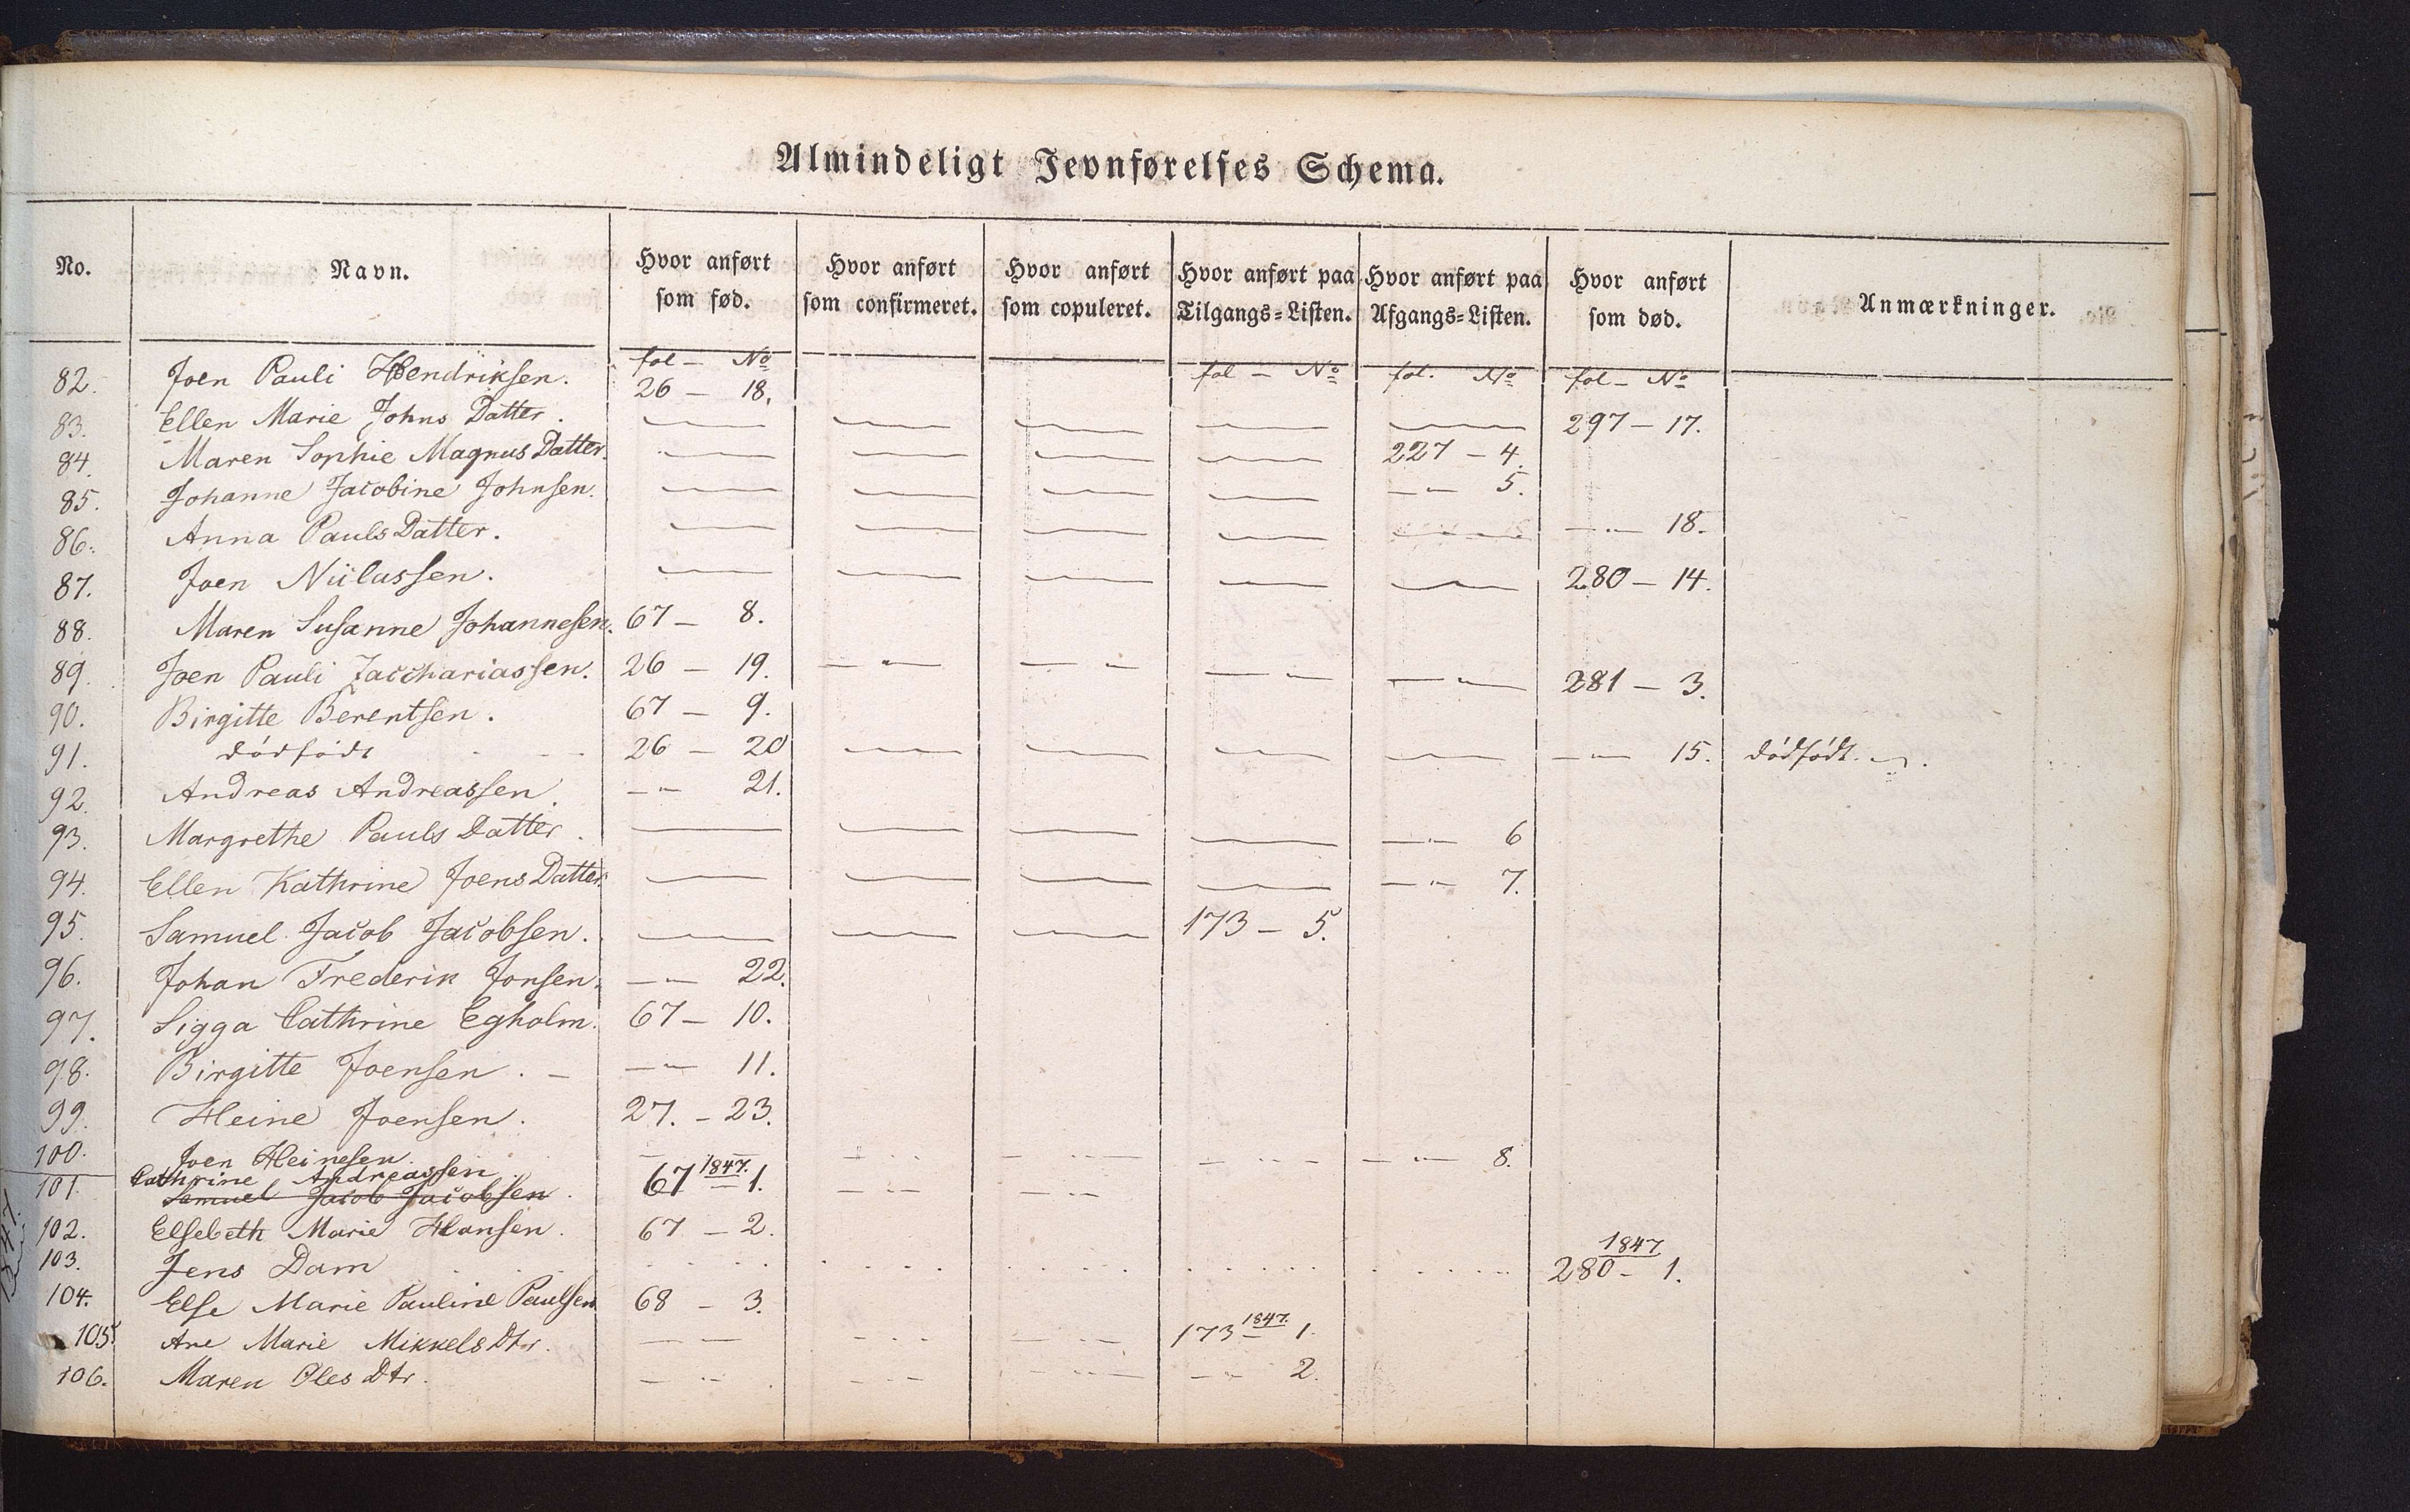 Almindeligt Jevnførelses Schema.
No. Navn. Hvor anført som fød. Hvor anført som confirmeret. Hvor anført som copuleret. Hvor anført paa Tilgangs-Listen. Hvor anført paa Afgangs-Listen. Hvor anført som død. Anmærkninger.
fol – No fol – No fol. No fol – No
82. Joen Pauli Hendriksen. 26 – 18.
83. Ellen Marie Johns Datter. — — — — — 297 – 17.
84. Maren Sophie Magnus Datter. — — — — 227 – 4.
85. Johanne Jacobine Johnsen. — — — — – „ – 5.
86. Anna Pauls Datter. — — — — — – „ – 18.
87. Joen Niilassen. — — — — — 280 – 14.
88. Maren Susanne Johannesen. 67 – 8.
89. Joen Pauli Zacchariassen. 26 – 19. – „ – – „ – – „ – – „ – 281 – 3.
90. Birgitte Berentsen. 67 – 9.
91. dødfødt 26 – 20 — — — — – „ – 15. dødfødt.
92. Andreas Andreassen. – „ – 21.
93. Margrethe Pauls Datter. — — — — – „ – 6
94. Ellen Kathrine Joens Datter. — — — — – „ – 7.
95. Samuel Jacob Jacobsen. — — — 173 – 5.
96. Johan Frederik Jonsen. – „ – 22.
97. Sigga Cathrine Egholm. 67 – 10.
98. Birgitte Joensen. – – „ – 11.
99. Heine Joensen. 27. – 23.
100. Joen Heinesen. – „ – – „ – – „ – – „ – – „ – 8.
1847.
101. Cathrine Andreassen 67 – 1. – „ – – „ –
Samuel Jacob Jacobsen.
102. Elsebeth Marie Hansen. 67 – 2.
1847
103. Jens Dam 280 – 1.
104. Else Marie Pauline Paulsen 68 – 3.
1847.
105. Ane Marie Mikkels Dtr. — — – „ – – „ – 173 – 1.
106. Maren Oles Dtr. – „ – – „ – – „ – – „ – 2.
1847.